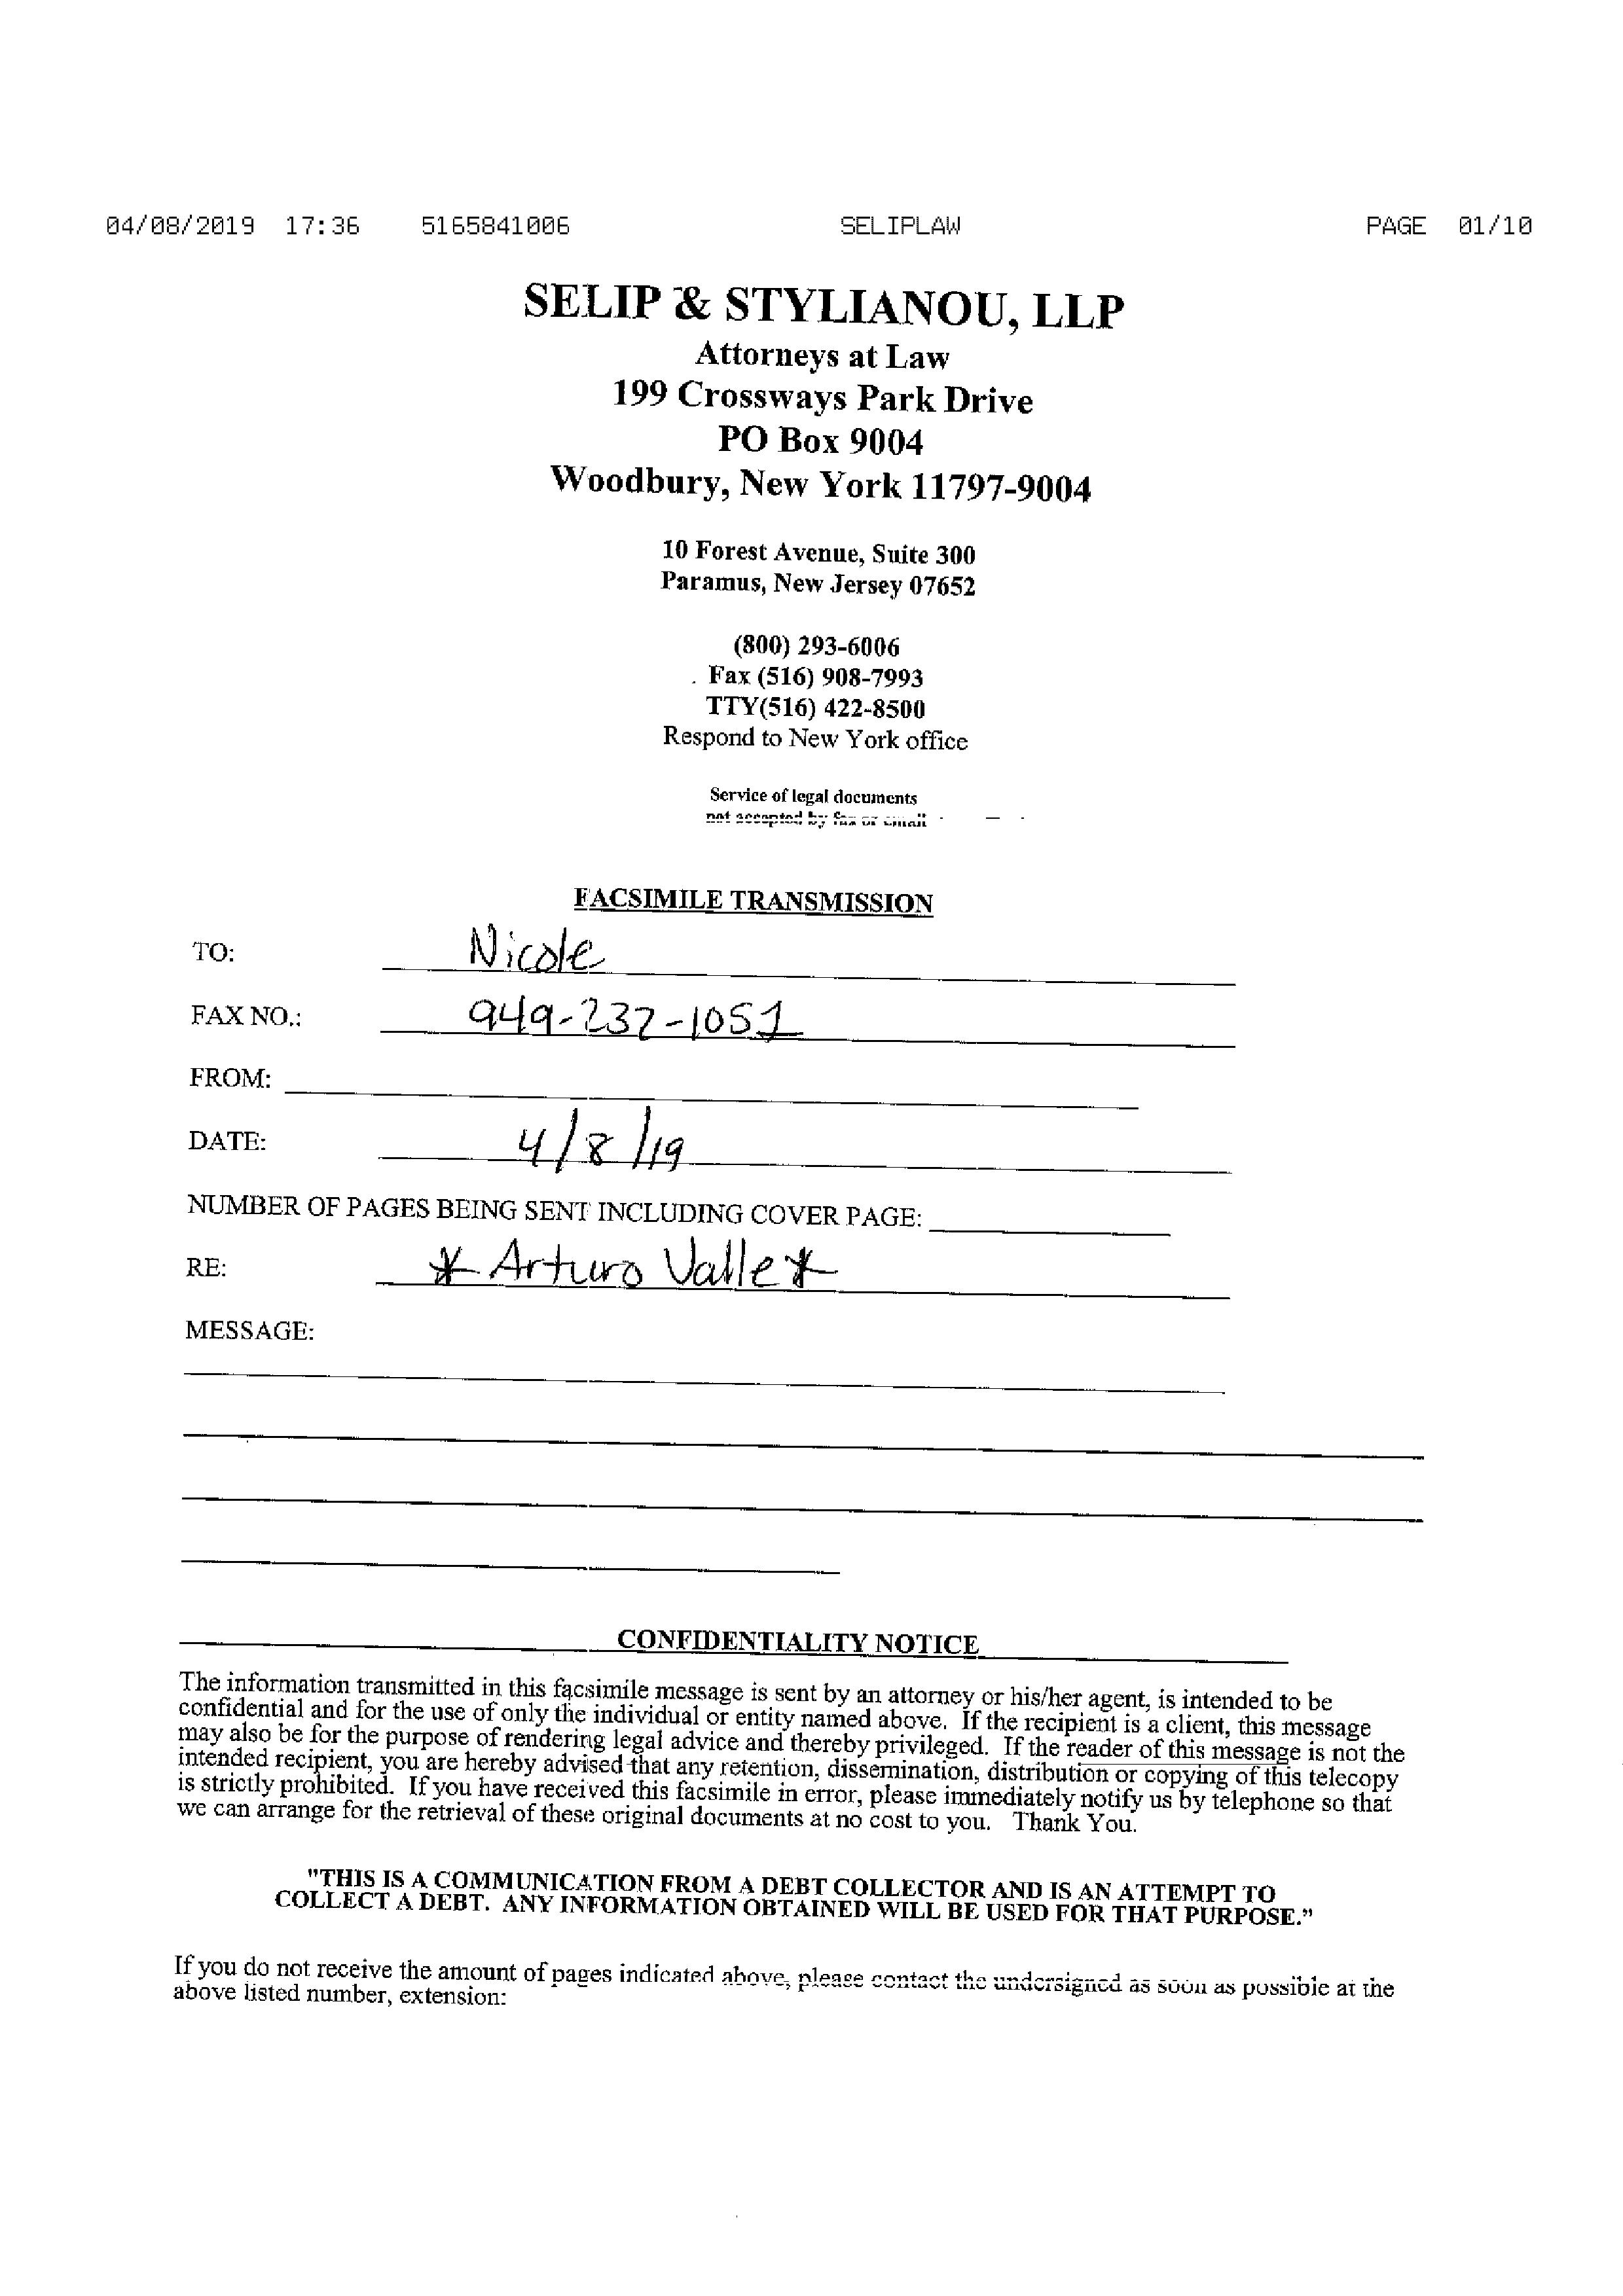 04/08/2019 17:36 5165841006 SELIPLAW PAGE 01/10
SELIP & STYLIANOU, LLP
Attorneys at Law
199 Crossways Park Drive
PO Box 9004
Woodbury, New York 11797-9004
10 Forest Avenue, Suite 300
Paramus, New Jersey 07652
(800) 293-6006
Fax (516) 908-7993
TTY(516) 422-8500
Respond to New York office
Service of legal documents
not accepted by fax or email
FACSIMILE TRANSMISSION
TO: Nicole
FAX NO.: 949-237-1051
FROM:
DATE: 4/8/19
NUMBER OF PAGES BEING SENT INCLUDING COVER PAGE:
RE: * Arturo Valle *
MESSAGE:
CONFIDENTIALITY NOTICE
The information transmitted in this facsimile message is sent by an attorney or his/her agent, is intended to be
confidential and for the use of only the individual or entity named above. If the recipient is a client, this message
may also be for the purpose of rendering legal advice and thereby privileged. If the reader of this message is not the
intended recipient, you are hereby advised that any retention, dissemination, distribution or copying of this telecopy
is strictly prohibited. If you have received this facsimile in error, please immediately notify us by telephone so that
we can arrange for the retrieval of these original documents at no cost to you. Thank You.
"THIS IS A COMMUNICATION FROM A DEBT COLLECTOR AND IS AN ATTEMPT TO
COLLECT A DEBT. ANY INFORMATION OBTAINED WILL BE USED FOR THAT PURPOSE."
If you do not receive the amount of pages indicated above, please contact the undersigned as soon as possible at the
above listed number, extension: